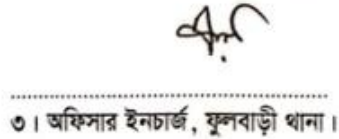 ৩। অফিসার ইনচার্জ, ফুলবাড়ী থানা।